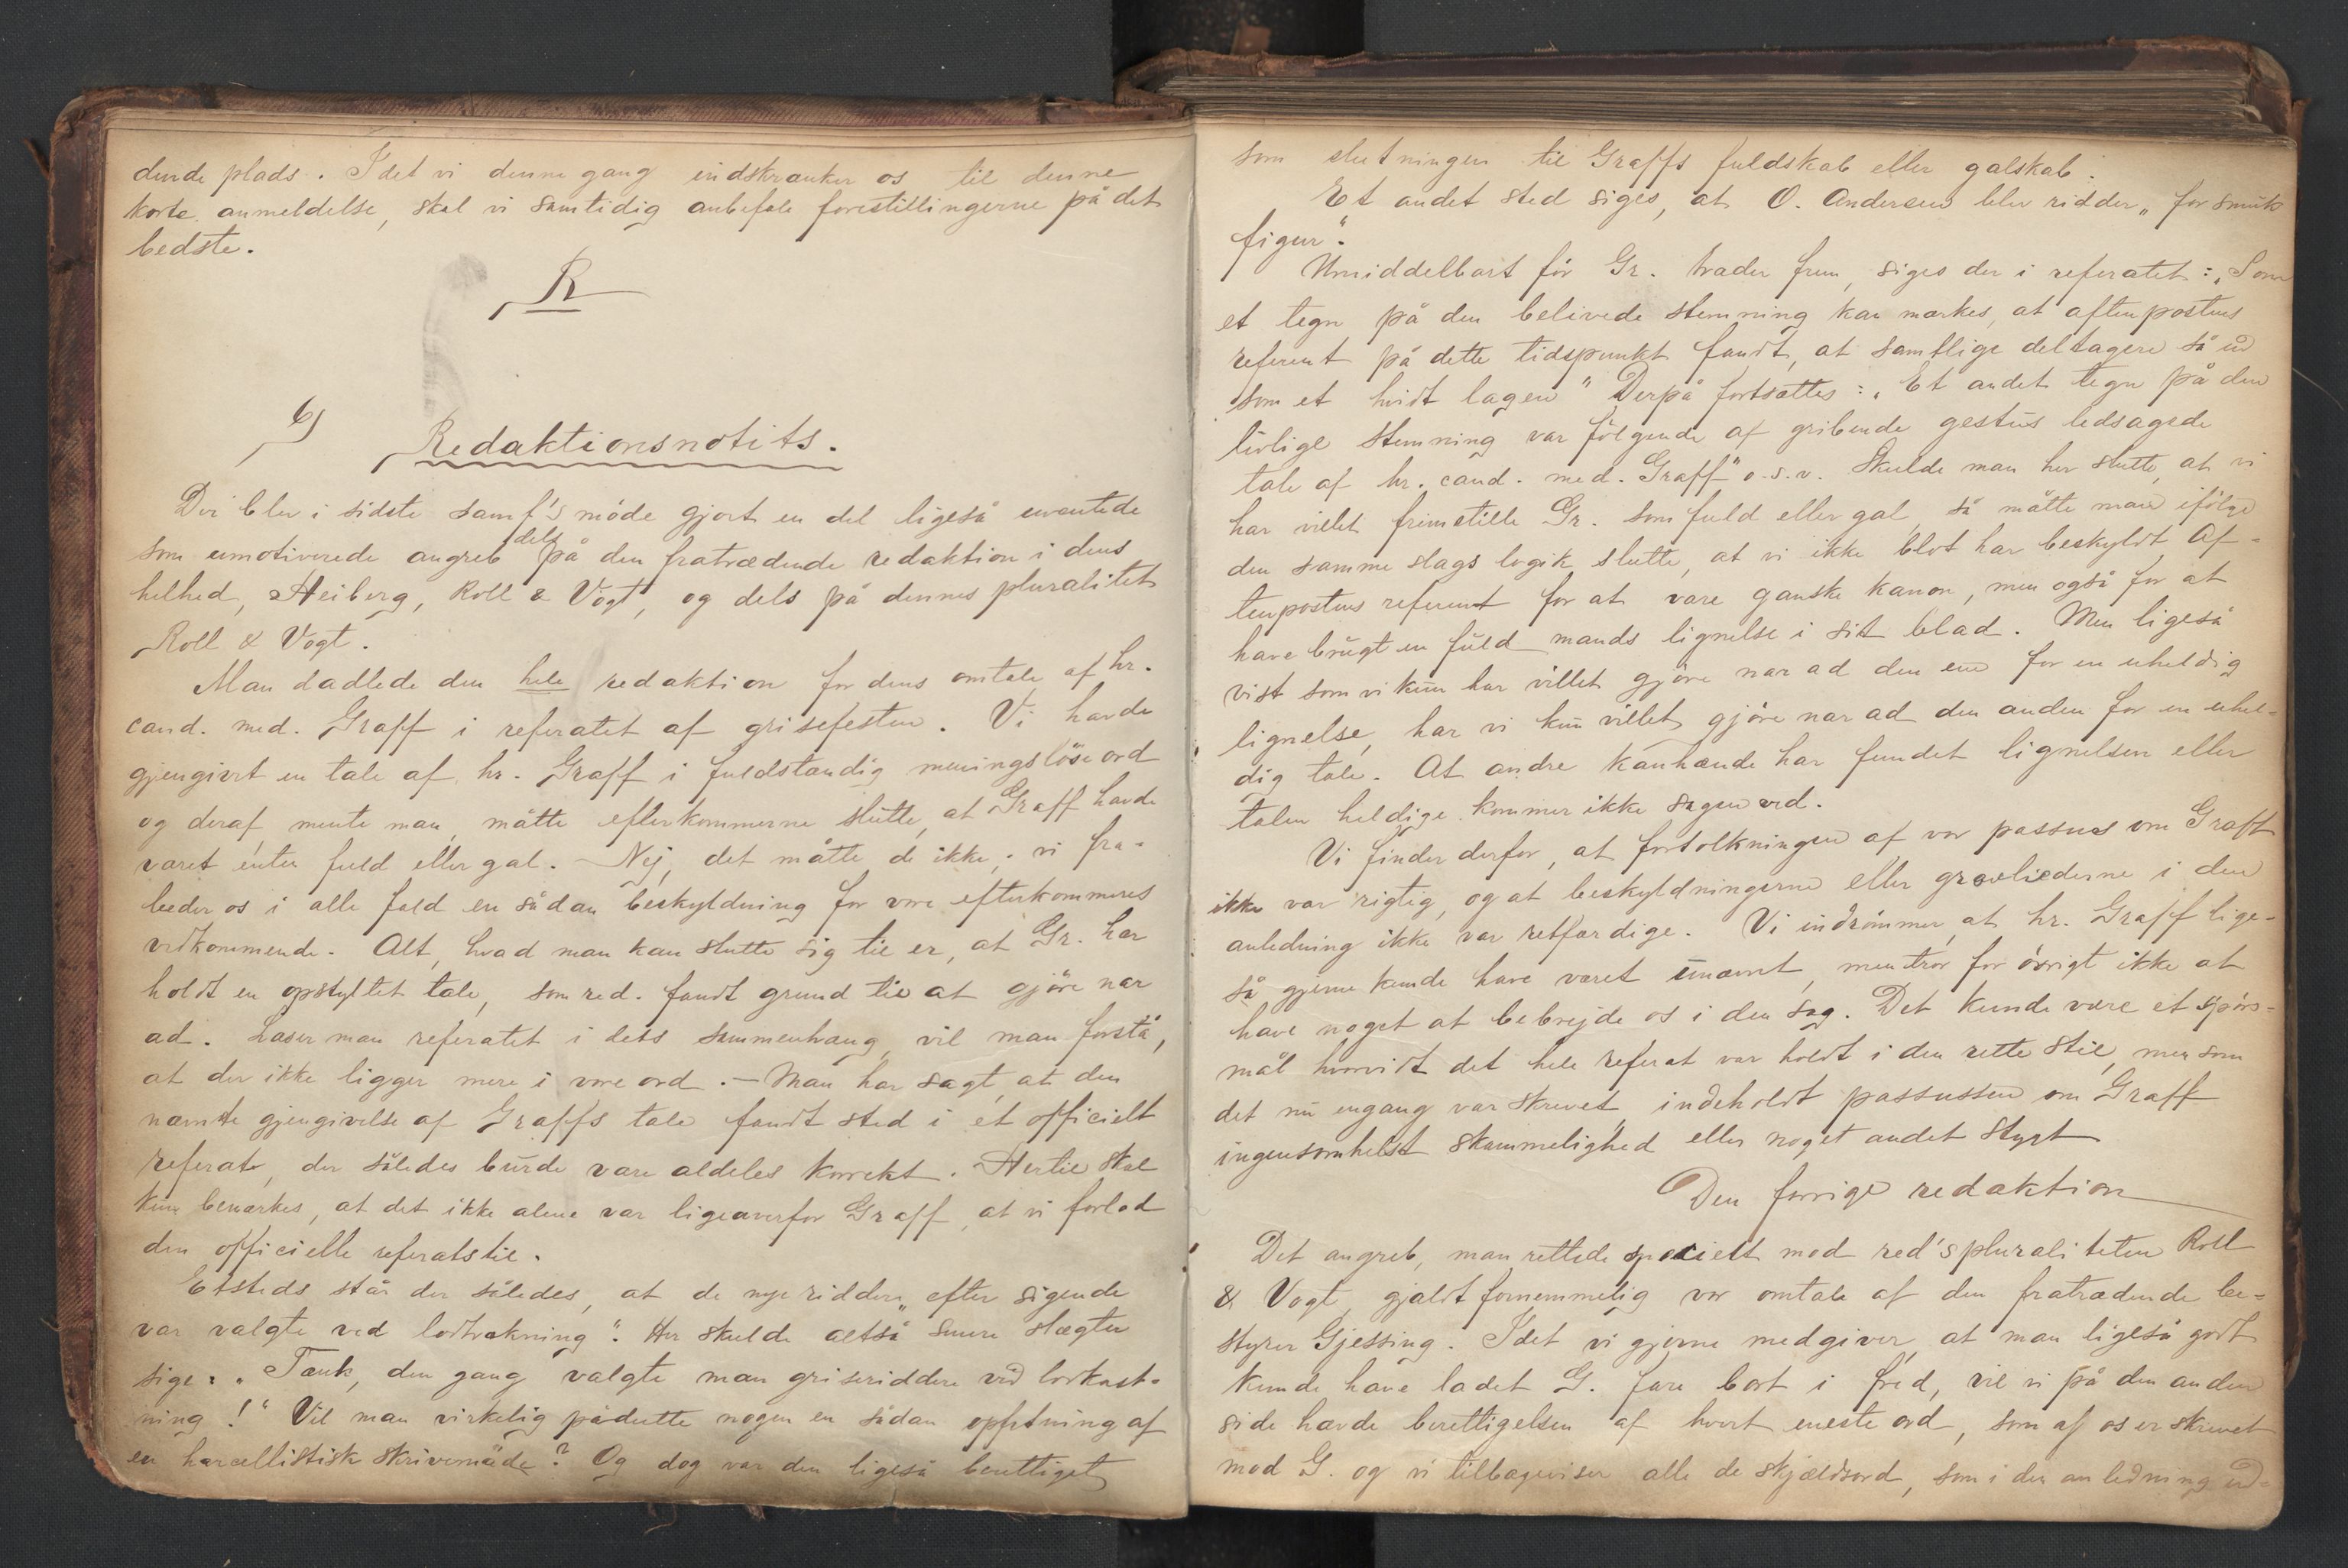 dende plads. Idet vi denne gang indskrænker os til denne
korte anmeldelse, skal vi samtidig anbefale forestillingerne på det
bedste.
R
6)
Redaktionsnotits.
Der blev i sidste samf's möde gjort en del ligeså uventede
som umotiverede angreb dels på den fratrædende redaktion i dens
helhed, Heiberg, Roll & Vogt, og dels på dennes pluralitet
Roll & Vogt.
Man dadlede den hele redaktion for dens omtale af hr.
cand. med. Graff i referatet af grisefesten. Vi havde
gjengivet en tale af hr. Graff i fuldstændig meningslöse ord
og deraf mente man, måtte efterkommerne slutte, at Graff havde
været enten fuld eller gal. – Nej, det måtte de ikke, vi fra-
beder os i alle fald en sådan beskyldning for vore efterkommeres
vedkommende. Alt, hvad man kan slutte sig til er, at Gr. har
holdt en opstyltet tale, som red. fandt grund til at gjöre nar
ad. Læser man referatet i dets sammenhæng, vil man forstå,
at der ikke ligger mere i vore ord. – Man har sagt, at den
nævnte gjengivelse af Graffs tale fandt sted i et officielt
referat, der således burde være aldeles korrekt. Hertil skal
kun bemærkes, at det ikke alene var ligeoverfor Graff, at vi forlod
den officielle referatstil.
Etsteds står der således, at de nye riddere „efter sigende
var valgte ved lodtrækning". Her skulde altså senere slægter
sige: „Tænk, den gang valgte man griseriddere ved lodkast-
ning!" Vil man virkelig pådutte nogen en sådan opfatning af
en harcellistisk skrivemåde? Og dog var den ligeså berettiget
som slutningen til Graffs fuldskab eller galskab.
Et andet sted siges, at O. Andersen blev ridder „for smuk
figur".
Umiddelbart för Gr. træder frem, siges der i referatet: „Som
et tegn på den belivede stemning kan mærkes, at aftenpostens
referent på dette tidspunkt fandt, at samtlige deltagere så ud
som et hvidt lagen" Derpå fortsættes: „Et andet tegn på den
livlige stemning var fölgende af gribende gestus ledsagede
tale af hr. cand. med. Graff" o.s.v. Skulde man her slutte, at vi
har villet fremstille Gr. som fuld eller gal, så måtte man ifölge
den samme slags logik slutte, at vi ikke blot har beskyldt Af-
tenpostens referent for at være ganske kanon, men også for at
have brugt en fuld mands lignelse i sit blad. Men ligeså
vist som vi kun har villet gjöre nar ad den ene for en uheldig
lignelse, har vi kun villet gjöre nar ad den anden for en uhel-
dig tale. At andre kanhænde har fundet lignelsen eller
talen heldige kommer ikke sagen ved.
Vi finder derfor, at fortolkningen af vor passus om Graff
ikke var rigtig, og at beskyldningerne eller grovhederne i den
anledning ikke var retfærdige. Vi indrömmer, at hr. Graff lige-
så gjerne kunde have været unævnt, men tror for övrigt ikke at
have noget at bebrejde os i den sag. Det kunde være et spörs-
mål hvorvidt det hele referat var holdt i den rette stil, men som
det nu engang var skrevet, indeholdt passussen om Graff
ingensomhelst skammelighed eller noget andet stygt
Den forrige redaktion
Det angreb, man rettede specielt mod red's pluraliteten Roll
& Vogt, gjaldt fornemmelig vor omtale af den fratrædende be-
styrer Gjessing. Idet vi gjerne medgiver, at man ligeså godt
kunde have ladet G. fare bort i fred, vil vi på den anden
side hævde berettigelsen af hvert eneste ord, som af os er skrevet
mod G. og vi tilbageviser alle de skjældsord, som i den anledning ud-